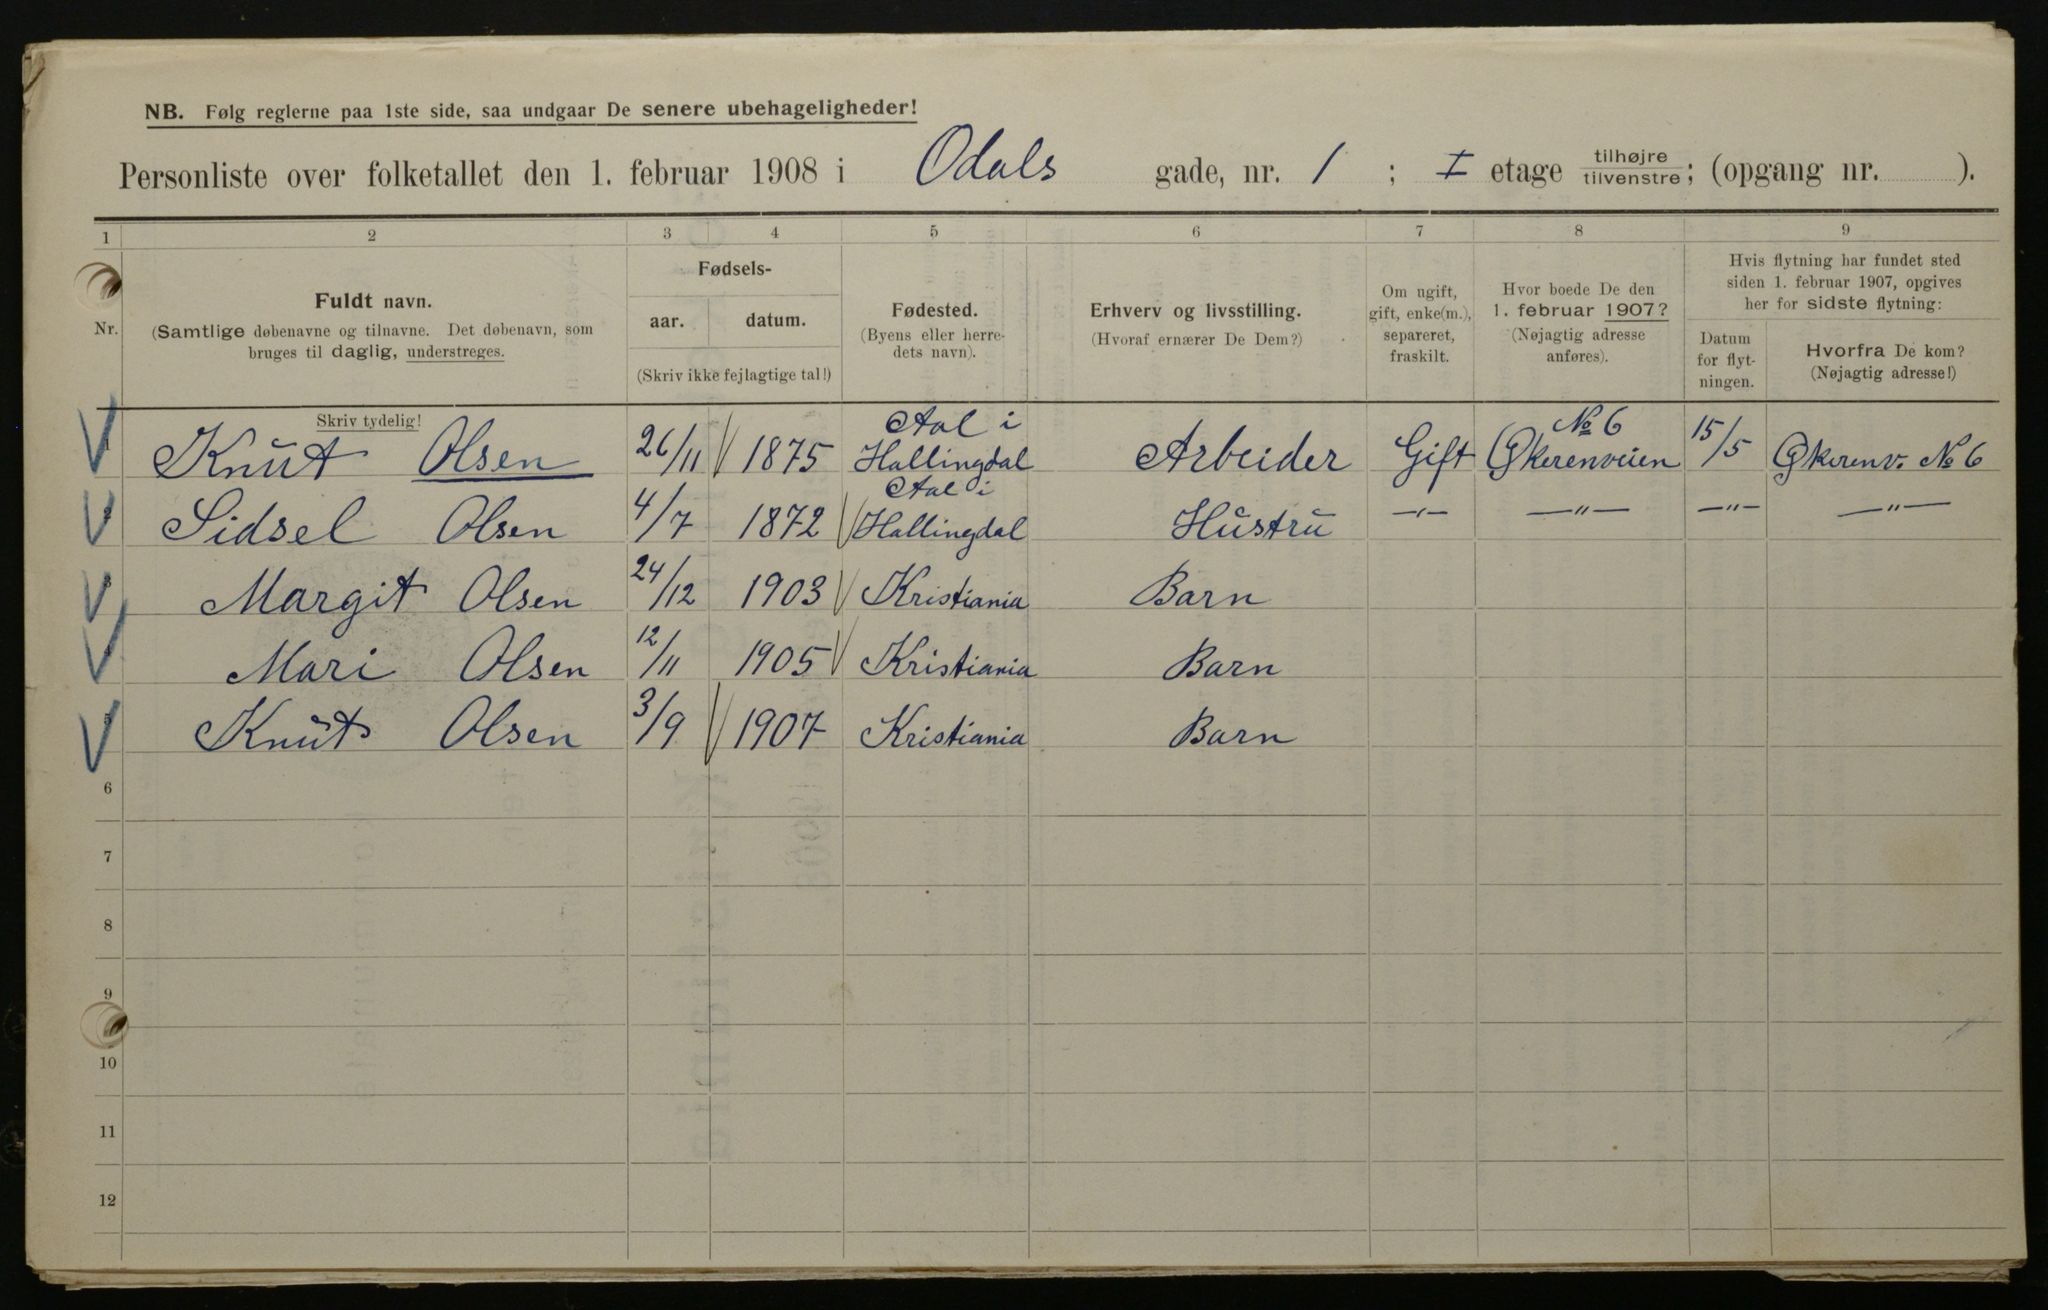 NB. Følg reglerne paa 1ste side, saa undgaar De senere ubehageligheder!
Personliste over folketallet den 1. februar 1908 i Odals gade, nr. 1 ; I etage tilhøjre tilvenstre; (opgang nr. ).
1 2 3 4 5 6 7 8 9
Nr.
Fuldt navn.
(Samtlige døbenavne og tilnavne. Det døbenavn, som
bruges til daglig, understreges.
Skriv tydelig!
Fødsels-
aar. datum.
(Skriv ikke fejlagtige tal!)
Fødested.
(Byens eller herre-
dets navn).
Erhverv og livsstilling.
(Hvoraf ernærer De Dem?)
Om ugift,
gift, enke(m.),
separeret,
fraskilt.
Hvor boede De den
1. februar 1907?
(Nøjagtig adresse
anføres).
Hvis flytning har fundet sted
siden 1. februar 1907, opgives
her for sidste flytning:
Datum
for flyt-
ningen.
Hvorfra De kom?
(Nøjagtig adresse!)
Knut Olsen 26/11 1875 Aal i Hallingdal Arbeider Gift Økerenveien No 6 15/5 Økerenv. No 6
Sidsel Olsen 4/7 1872 Aal i Hallingdal Hustru —"— —"— —"— —"—
Margit Olsen 24/12 1903 Kristiania Barn
Mari Olsen 12/11 1905 Kristiania Barn
Knut Olsen 3/9 1907 Kristiania Barn
6
7
8
9
10
11
12